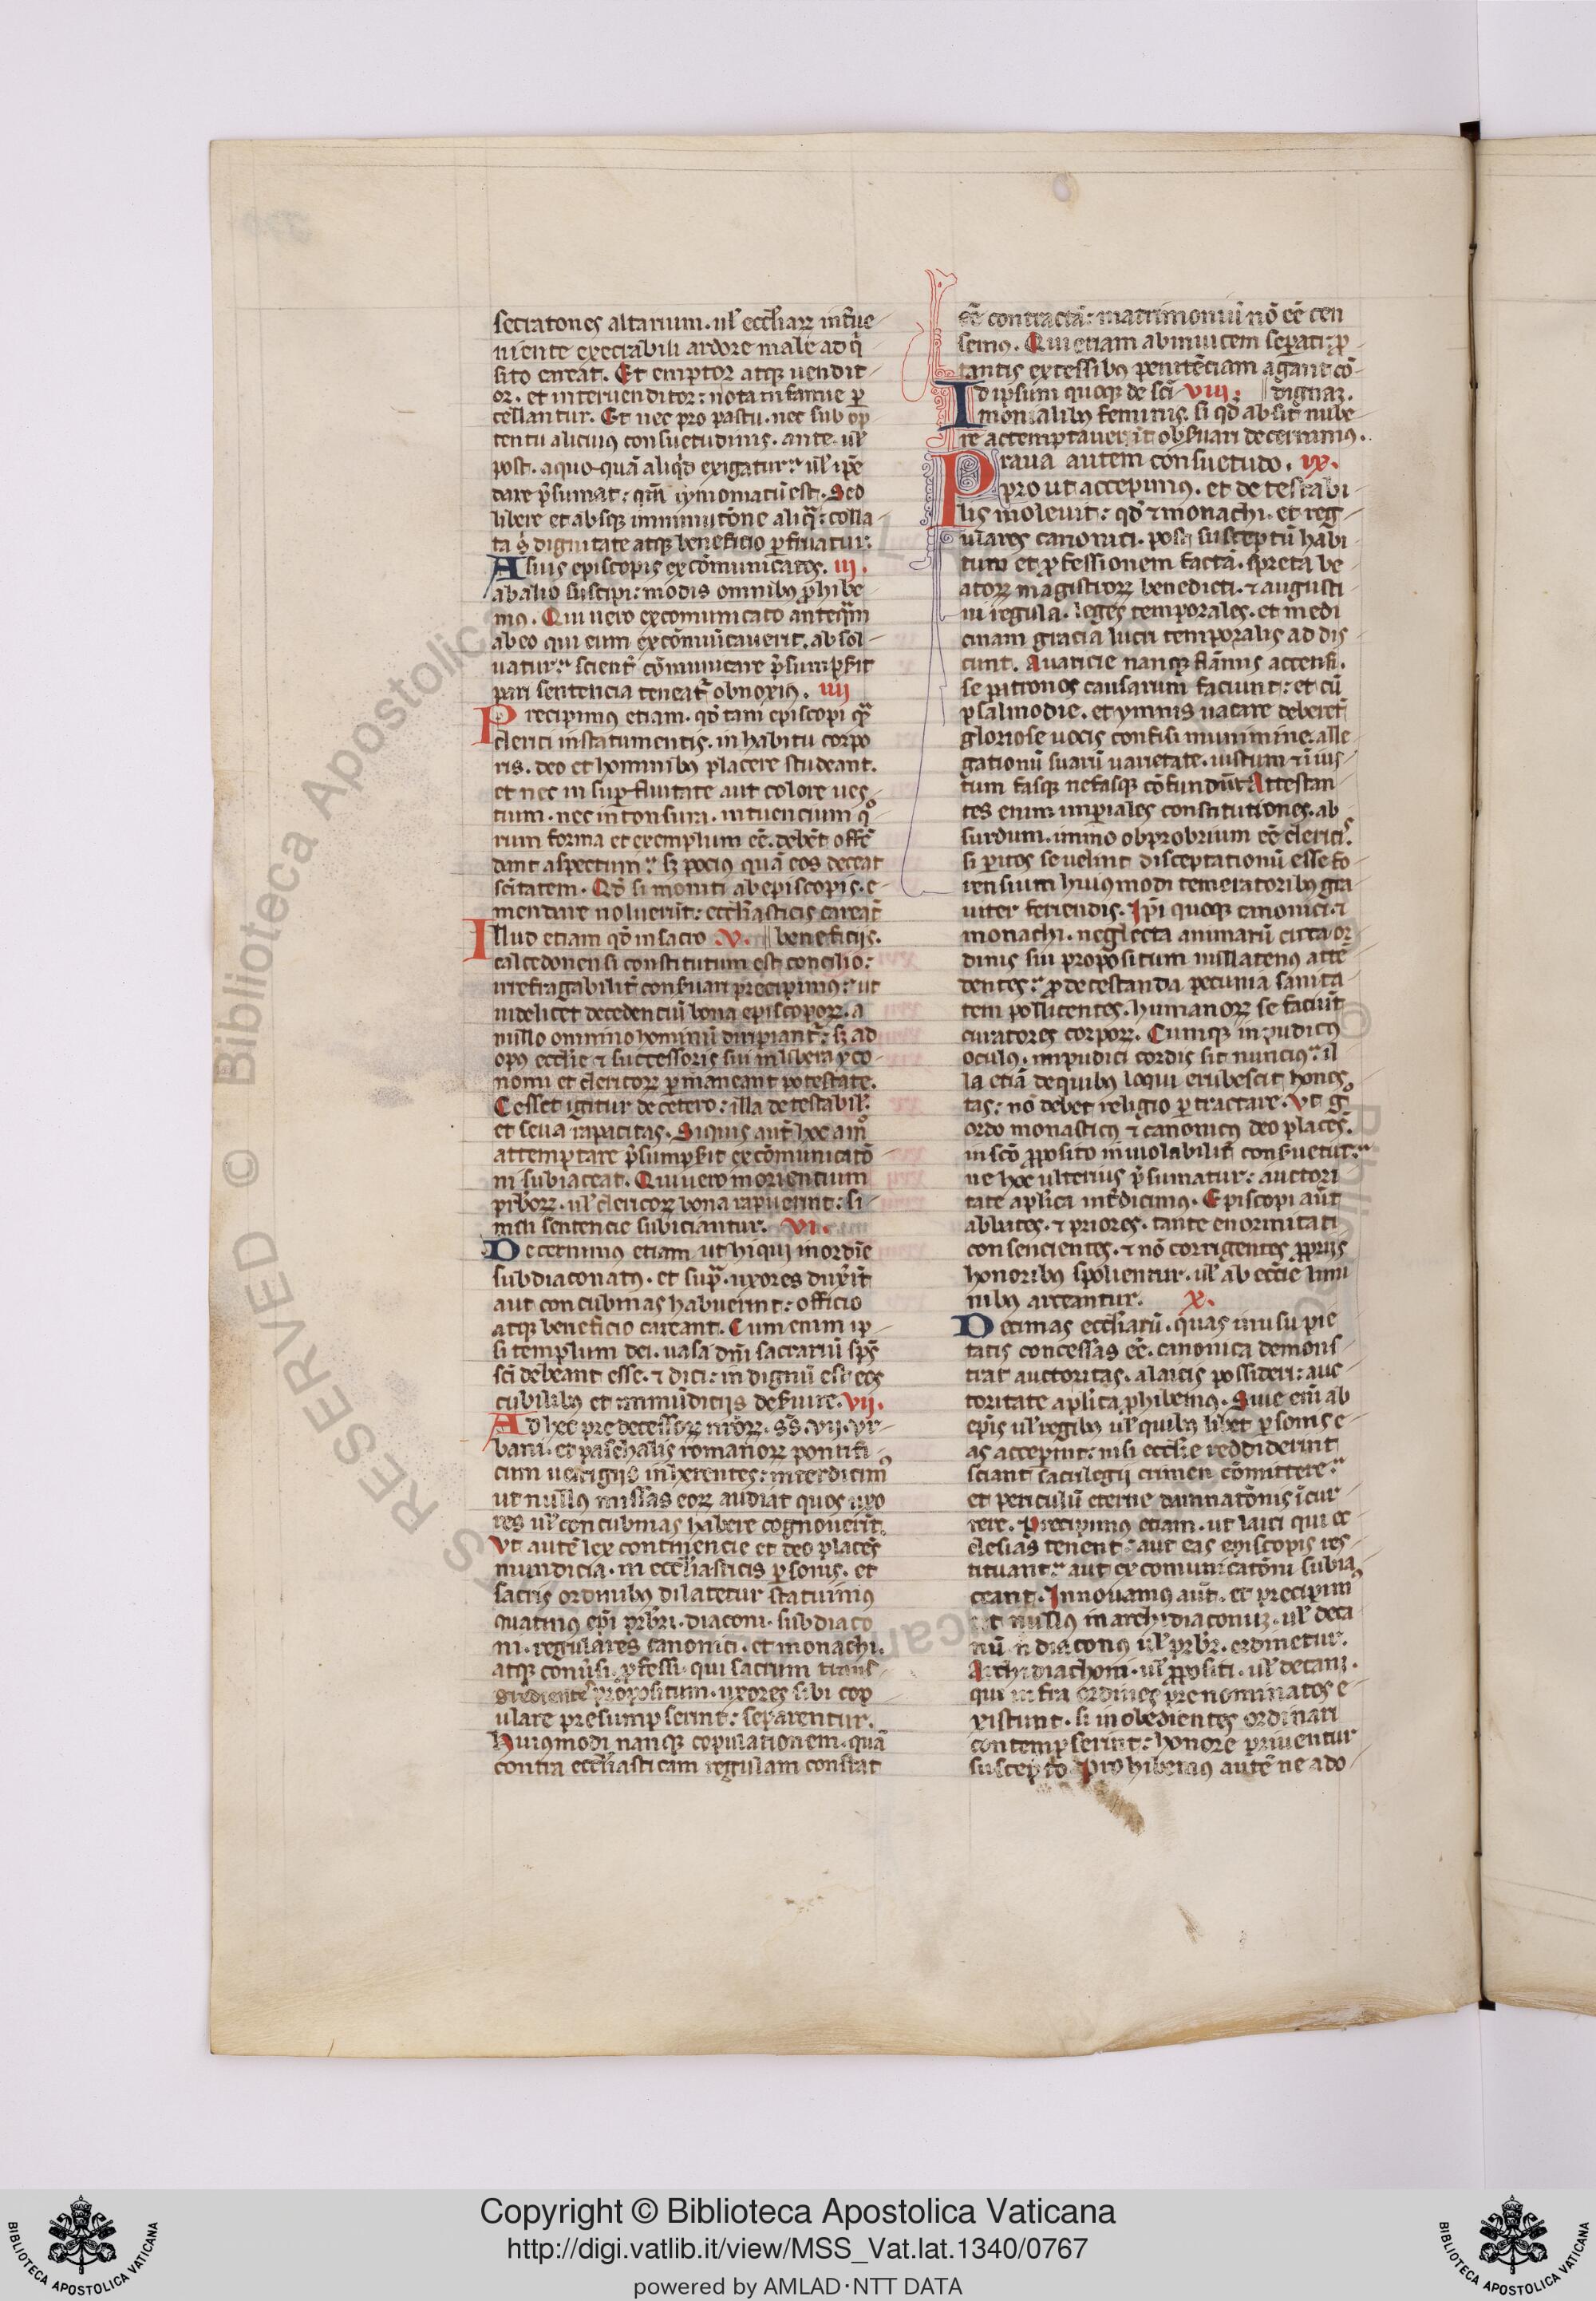 secrationes altarium. ul' eccl'iarꝝ in t'ue
niente execrabili ardore male adq'
sito careat. Et emptor atqꝫ uendit
or. et interuenditor: nota infamie ꝑ
cellantur. Et nec pro pastu. nec sub op
tentu alicuius consuetudinis. ante. ul'
post. a quoquā aliq'd exigatur: ul' ip̄e
dare p̄sumat: qm̄ symoniacū est. Sed
libere et absqꝫ inminutōne aliq̄: colla
ta s' dignitate atqꝫ beneficio ꝑfruatur.
A suis episcopis excōmunicatos. iii.
ab alio suscipi: modis omnibꝰ ꝓhibe
mꝰ. Qui uero excomunicato anteq̄m
ab eo qui eum excōmūicauerit. absol
uatur: scient' cōmunicare p̄sumpserit
pari sentencia teneat' obnoxiꝰ. iiii
Precipimꝰ etiam. qd' tam episcopi q̄
clerici in statu mentis. in habitu corpo
ris. deo et hominibꝰ placere studeant.
et nec in suꝑfluitate aut colore ues
tium. nec in tonsura. intuencium q°
rum forma et exemplum eē. debēt offē
dant aspectum: sꝫ pociꝰ quā eos deceat
sc̄itatem. Qd' si moniti ab episcopis. e
mendare noluerīt: eccl'iasticis careāt
Illud etiam qd' in sacro V. beneficiis.
calcedonensi constitutum est concilio:
irrefragabilit' conseruari precipimꝰ: ut
uidelicet decedenciū bona episcoporꝝ. a
nullo omnino hominū diripiant': sꝫ ad
opꝰ ecclie ⁊ successoris sui in libera yco
nomi et clericorꝝ ꝑmaneant potestate.
Cesset igitur de cetero: illa detestabil'.
et seua rapacitas. Siquis aut' hoc amō
attemptare p̄sumpserit excōmunicatō
ni subiaceat. Qui uero moriencium
prb'rorꝝ. ul' clericorꝝ bona rapuerint: si
mili sentencie subiciantur. VI.
Decernimꝰ etiam ut hi qui in ordīe
subdiaconatꝰ. et sup̄. uxores duxerīt
aut concubinas habuerint: officio
atqꝫ beneficio careant. Cum enim ip
si templum dei. uasa dn̄i sacrariū sp̄s
sc̄i debeant esse. ⁊ dici: indignū est eos
cubilibꝰ et inmūdiciis deseruire. VII.
Ad hec predecessorꝝ nr̄orꝝ. GG. VII. Vr
bani. et paschalis romanorꝝ pontifi
cum uestigiis inherentes: interdicimꝰ
ut nullꝰ missas eorꝝ audiat quos uxo
res ul' concubinas habere cognouerīt.
Vt autē lex continencie et deo placēs
mundicia. in eccl'iasticis ꝑsonis. et
sacris ordinibꝰ dilatetur statuimꝰ
quatinꝰ ep̄i prb'ri. diaconi. subdiaco
ni. regulares canonici. et monachi.
atqꝫ conūsi. ꝓfessi. qui sacrum trans
gredientes propositum. uxores sibi cop
ulare presumpserint: separentur.
Huiꝰmodi nanqꝫ copulationem. quā
contra eccl'iasticam regulam constat
eē contractā: matrimoniū nō eē cen
semꝰ. Qui etiam abinuicem seꝑati: ꝓ
tantis excessibꝰ penitēciam agant cō
Id ipsum quoqꝫ de sc̄i VIII. dignaꝫ.
monialibꝰ feminis. si qd' absit nube
re attemptauerint obseruari decernimꝰ.
Praua autem consuetudo. IX.
prout accepimꝰ. et detestabi
lis inoleuit: qd' ⁊ monachi. et reg
ulares canonici. post susceptū habi
tum et ꝓfessionem factā. spreta be
atorꝝ magistrorꝝ benedicti. ⁊ augusti
ni regula. leges temporales. et medi
cinam gracia lucri temporalis addis
cunt. Auaricie nanqꝫ flāmis accensi.
se patronos causarum faciunt: et cū
psalmodie. et ymnis uacare deberēt
gloriose uocis confisi munimine. alle
gationū suarū uarietate. iustum ⁊ iīus
tum fasqꝫ nefasqꝫ cōfundūt. Attestan
tes enim imꝑiales constitutiones. ab
surdum. immo obprobrium eē clericis
si ꝑitos se uelint disceptationū esse fo
rensium huiꝰmodi temeratoribꝰ gra
uiter feriendis. Ip̄i quoqꝫ canonici. ⁊
monachi. neglecta animarū cura or
dinis sui propositum nullatenꝰ attē
dentes: ꝓ detestanda pecunia sanita
tem pollicentes. humanorꝝ se faciūt
curatores corporꝝ. Cumqꝫ inpudicꝰ
oculꝰ. inpudici cordis sit nunciꝰ: il
la etiā de quibꝰ loqui erubescit hones
tas: nō debet religio ꝑtractare. Vt g°
ordo monasticꝰ ⁊ canonicꝰ deo placēs.
in sc̄o ꝓposito inuiolabilit' conseruetur:
ne hoc ulterius p̄sumatur: auctori
tate apl'ica int'dicimꝰ. Episcopi aūt
abbates. ⁊ priores. tante enormitati
consencientes. ⁊ nō corrigentes ꝓpriis
honoribꝰ spolientur. ul' ab ecc̄ie limi
nibꝰ arceantur. X.
Decimas eccl'iarū. quas in usu pie
tatis concessas eē. canonica demons
trat auctoritas. a laicis possideri: auc
toritate apl'ica ꝓhibemꝰ. Siue enī ab
ep̄is ul' regibꝰ ul' quibꝰ libet ꝑsonis e
as acceperint: nisi eccl'ie reddiderint
sciant sacrilegii crimen cōmittere:
et periculū eterne damnatōnis īcur
rere. Precipimꝰ etiam. ut laici qui ec
clesias tenent: aut eas episcopis res
tituant: aut excomunicatōni subia
ceant. Innouamus aūt. et precipimꝰ
ut nullꝰ in archidiaconuꝫ. ul' deca
nū. n̄ diaconꝰ ul' prb'r. ordinetur.
Archidiachoni. ul' ꝓpositi. ul' decani.
qui infra ordines prenominatos e
xistunt. si inobedientes ordinari
contempserint: honore priuentur
suscepto. Prohibemꝰ autē ne ado
Copyright © Biblioteca Apostolica Vaticana
http://digi.vatlib.it/view/MSS_Vat.lat.1340/0767
powered by AMLAD·NTT DATA
BIBLIOTECA APOSTOLICA VATICANA
BIBLIOTECA APOSTOLICA VATICANA